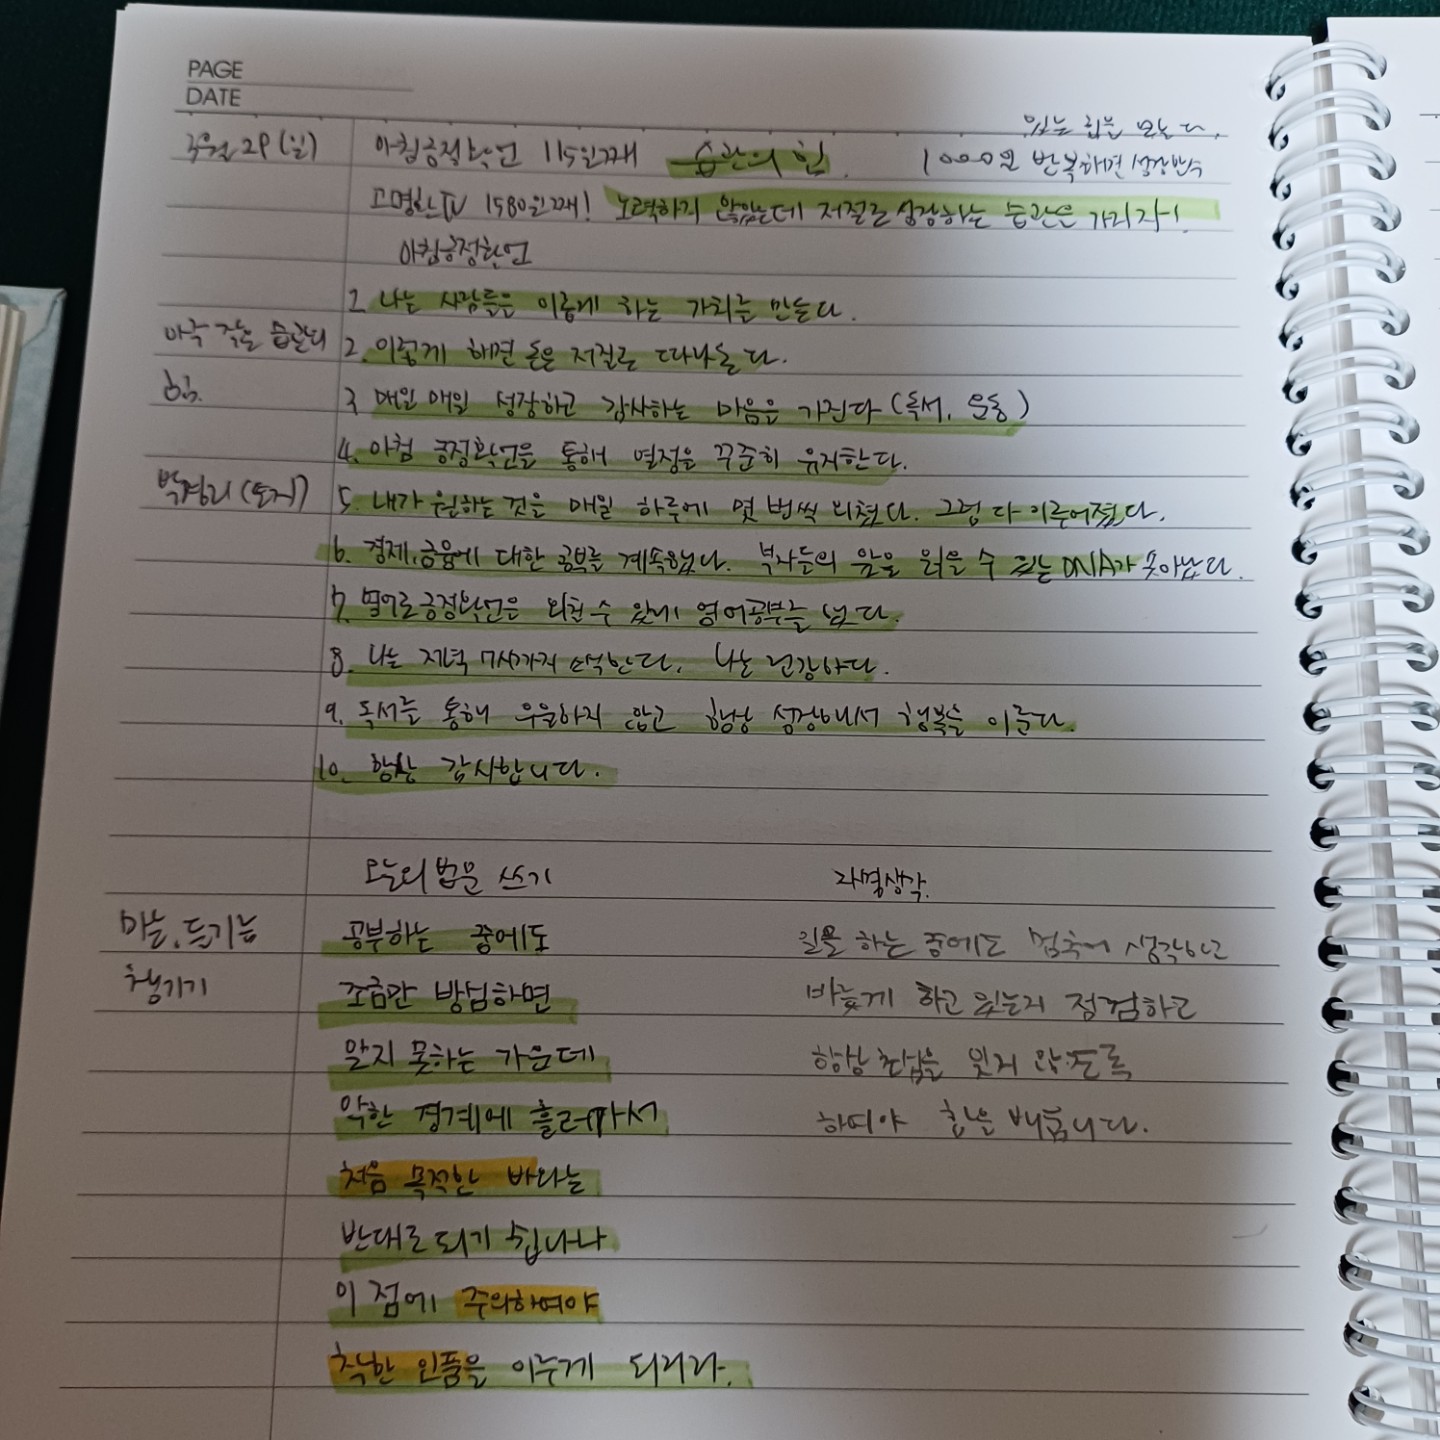 PAGE
DATE
29(일) 아침긍정확언 115일째 습관의 힘. 1000일 반복해면
있는 힘을
고명환TV 1580일째! 노력하지 않았는데 저절로 성장하는 습관을 가지자!
아침긍정확언
1. 나는 사람들은 이롭게 하는 가치를 만든다.
아주 작은 습관의 2. 이렇게 해면 돈은 저절로 따라온다.
힘. 3 매일매일 성장하고 감사하는 마음을 가진다 (독서, 운동)
4. 아침 긍정확언을 통해 열정을 꾸준히 유지한다.
박경리(토지) 5. 내가 원하는 것을 매일 하루에 몇 번씩 외쳤다. 그럼 다 이루어졌다.
6. 경제, 금융에 대한 공부를 계속했다. 부자들의 앞을 읽을 수 있는 DNA가 솟아났다.
7. 영어로 긍정확언은 외칠 수 있게 영어공부를 했다.
8. 나는 저녁 7시까지 소식한다. 나는 건강하다.
9. 독서를 통해 우울하지 않고 항상 성장해서 행복을 이룬다.
10. 항상 감사합니다.
오늘의 법문 쓰기 자명생각.
마늘, 공부하는 중에도 일을 하는 중에도 멈추어 생각하고
챙기기 조금만 방심하면 바쁘게 하고 있는지 점검하고
알지 못하는 가운데 항상 초심을 잊지 않도록
악한 경계에 흘러가서 하여야 함을 배웁니다.
처음 목적한 바와는
반대로 되기 쉽나니
이 점에 주의하여야
착한 인품을 이루게 되리라.